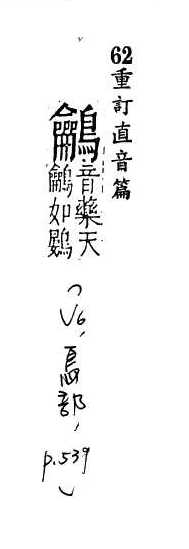 62重訂直音篇
鸙音藥天
鸙如鷃
(V6,鳥部,
p.539)